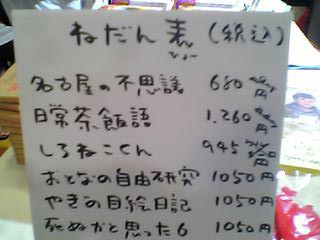 ねだん表(税込)
ひょー
名古屋の不思議 680円
日常茶飯語 1,260円
しろねこくん 945円
おとなの自由研究 1050円
やぎの目絵日記 1050円
死ぬかと思った6 1050円